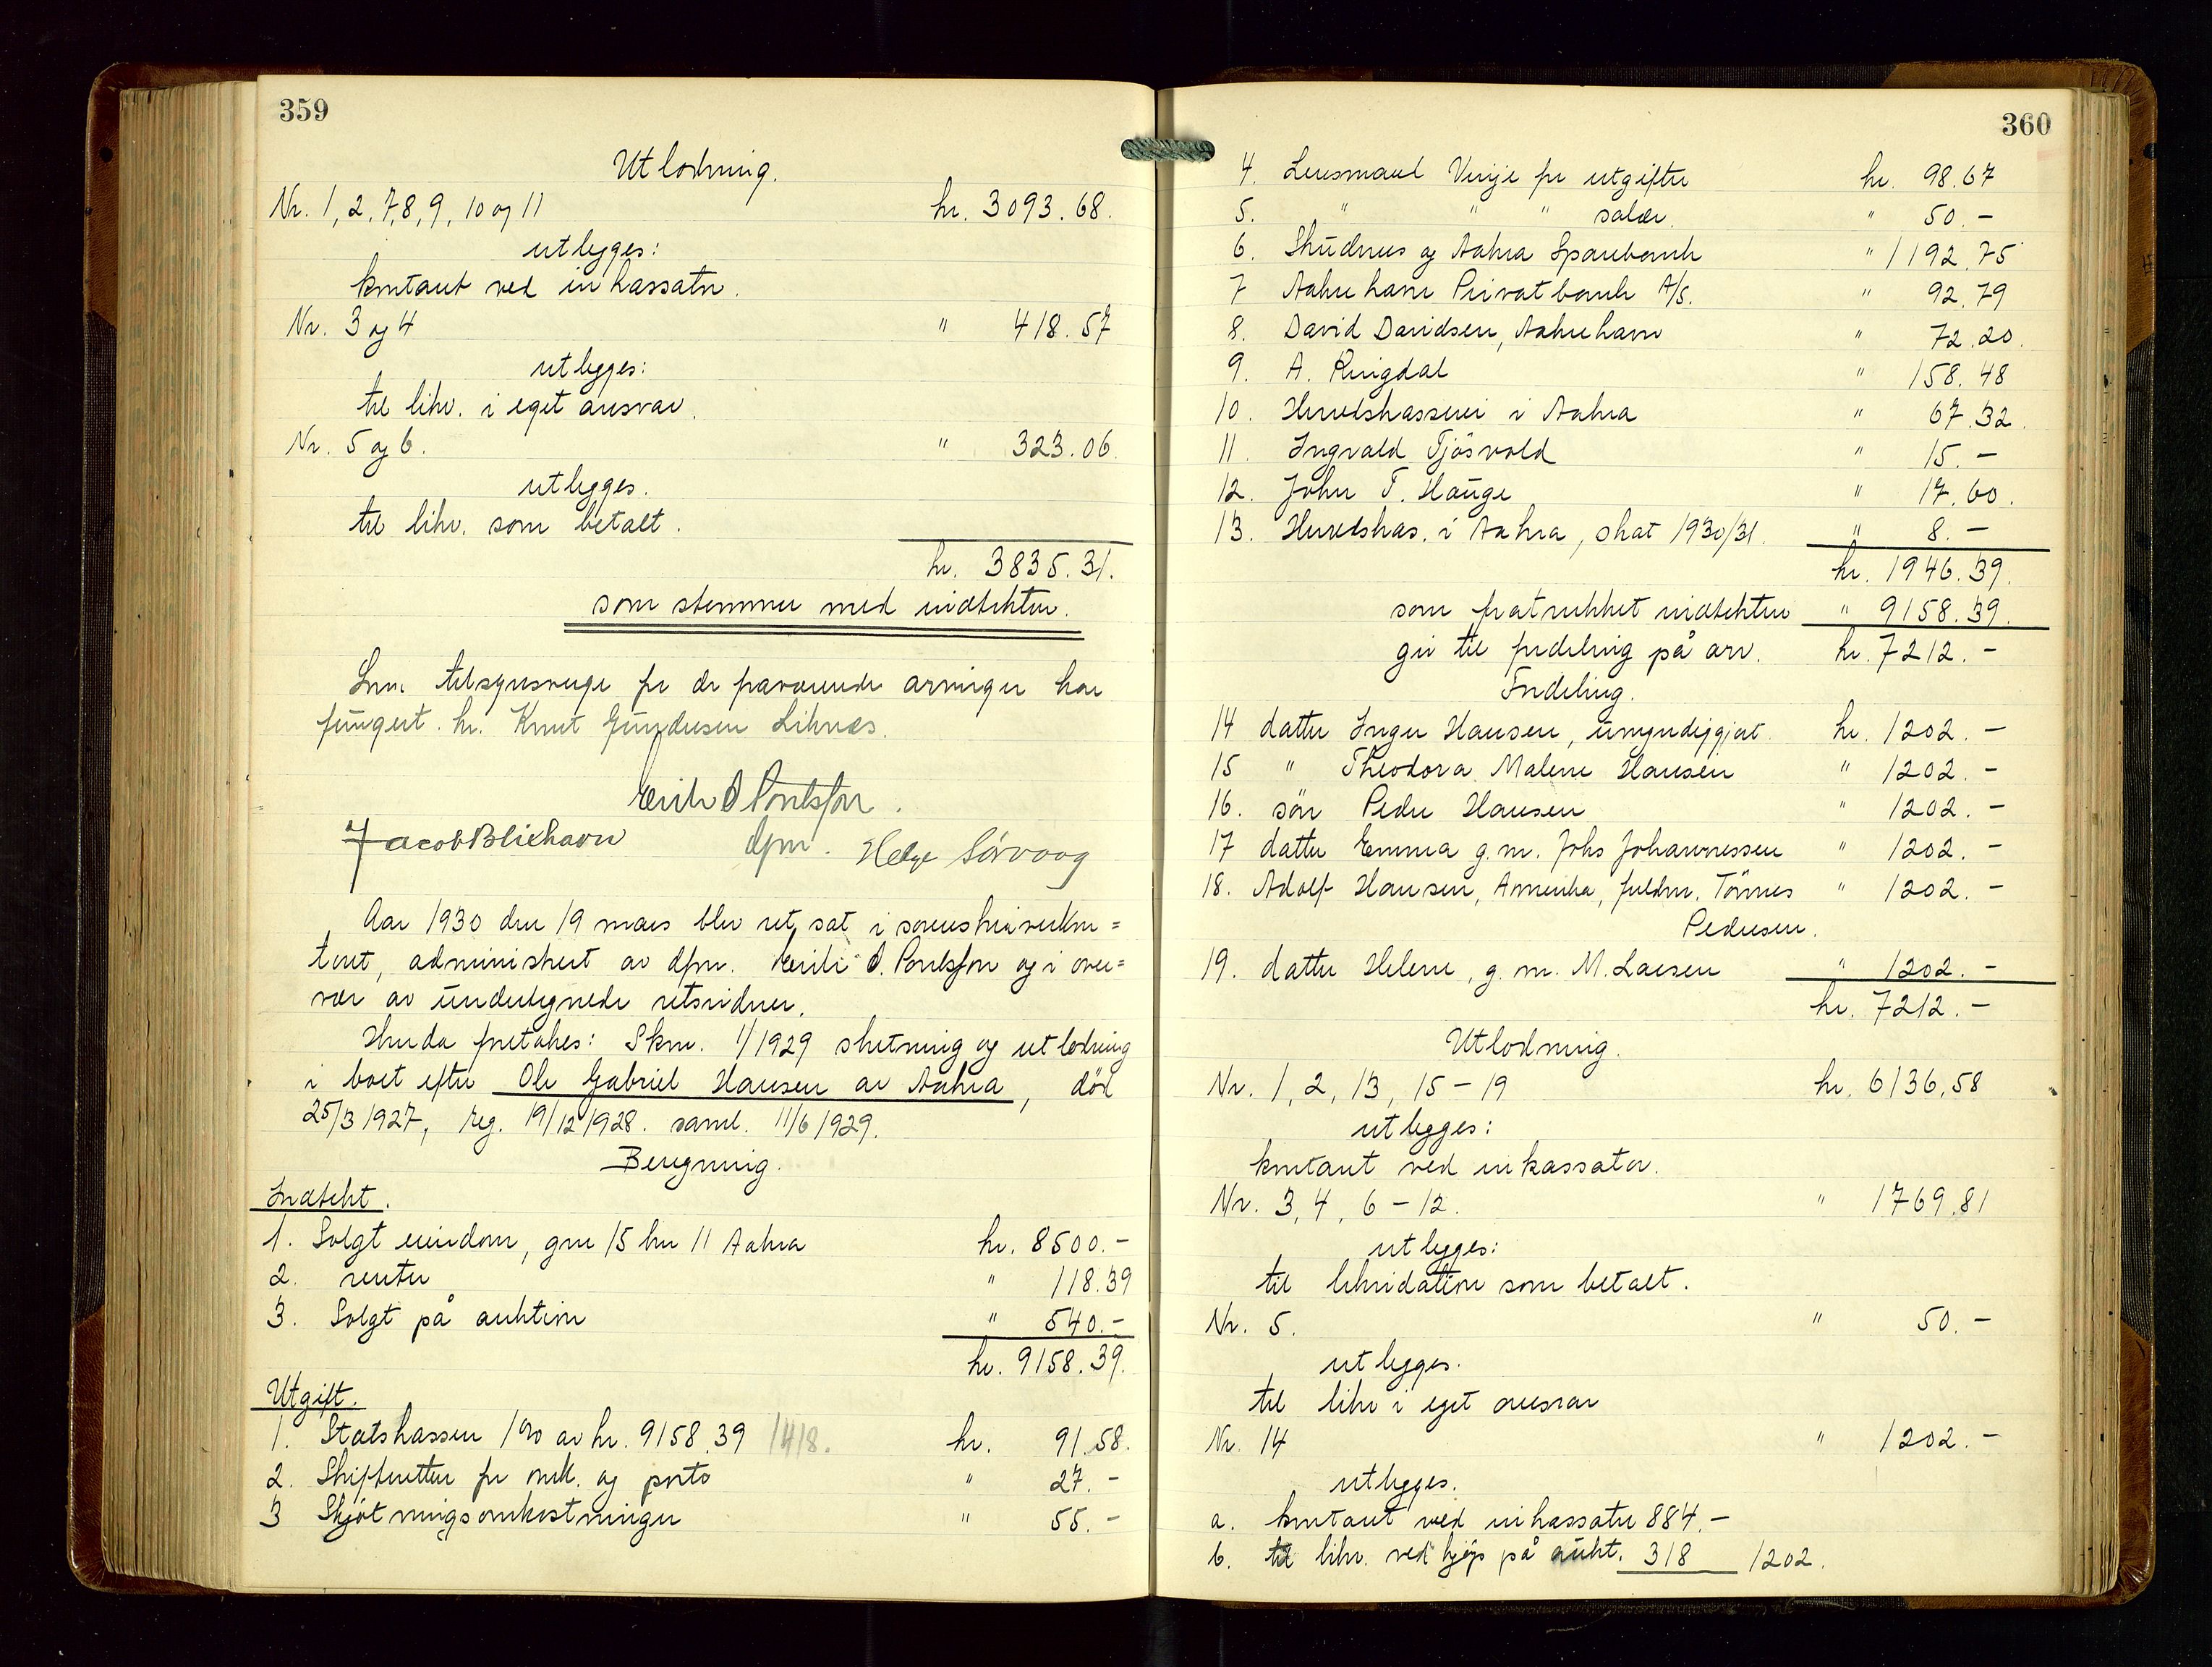 359
Utlodning.
Nr. 1, 2, 7, 8, 9, 10 og 11 kr. 3093.68.
utlegges:
kontant ved inkassator.
Nr. 3 og 4 " 418.57
utlegges:
til likv. i eget ansvar.
Nr. 5 og 6. " 323.06
utlegges.
til likv. som betalt.
kr. 3835.31.
som stemmer med indtekten.
Som tilsynsverge for de fraværende arvinger har
fungert hr. Knut Gundersen Liknes.
Eirik S Poulsson.
Jacob Bliehavn dfm. Helge Sörvaag
Aar 1930 den 19 mars blev ret sat i sorenskriverkon=
toret, administrert av dfm. Eirik S. Poulsson og i over=
vær av undertegnede retsvidner.
Hvorda foretokes: Skm. 1/1929 slutning og utlodning
i boet efter Ole Gabriel Hansen av Aakra, död
25/3 1927, reg. 19/12 1928. saml. 11/6 1929.
Beregning.
Indtekt.
1. Solgt eiendom, gnr 15 bnr 11 Aakra kr. 8500.-
2. renter " 118.39
3. Solgt på auktion " 540.-
kr. 9158.39.
Utgift.
1. Statskassen 1% av kr. 9158.39 1418. kr. 91.58.
2. Skifteretten for omk. og porto " 27.-
3 Skjötningsomkostninger " 55.-
360
4. Lensmand Vinje for utgifter kr. 98.67
5. " " " salær. " 50.-
6. Skudnes og Aakra Sparebank " 1192.75
7 Aakrehavn Privatbank A/S. " 92.79
8. David Davidsen, Aakrehavn " 72.20.
9. A. Ringdal " 158.48
10. Herredskasserer i Aakra " 67.32.
11. Ingvald Tjösvold " 15.-
12. John T. Hauge " 17.60.
13. Herredskas. i Aakra, skat 1930/31. " 8.-
kr. 1946.39.
som fratrukket indtekten " 9158.39.
gir til fordeling på arv. kr. 7212.-
Fordeling.
14 datter Inger Hansen, umyndiggjort. kr. 1202.-
15 " Theodora Malene Hansen " 1202.-
16. sön Peder Hansen " 1202.-
17 datter Emma g.m. Johs Johannessen " 1202.-
18. Adolf Hansen, Amerika, fuldm. Tönnes " 1202.-
Pedersen.
19. datter Helene, g.m. M. Larsen " 1202.-
kr. 7212.-
Utlodning.
Nr. 1, 2, 13, 15-19 kr. 6136,58
utlegges:
kontant ved inkassator.
Nr. 3, 4, 6-12. " 1769.81
utlegges:
til likvidation som betalt.
Nr. 5. " 50.-
utlegges.
til likv i eget ansvar
Nr. 14 " 1202.-
utlegges.
a. kontant ved inkassator 884.-
b. til likv. ved kjöp på aukt. 318 1202.